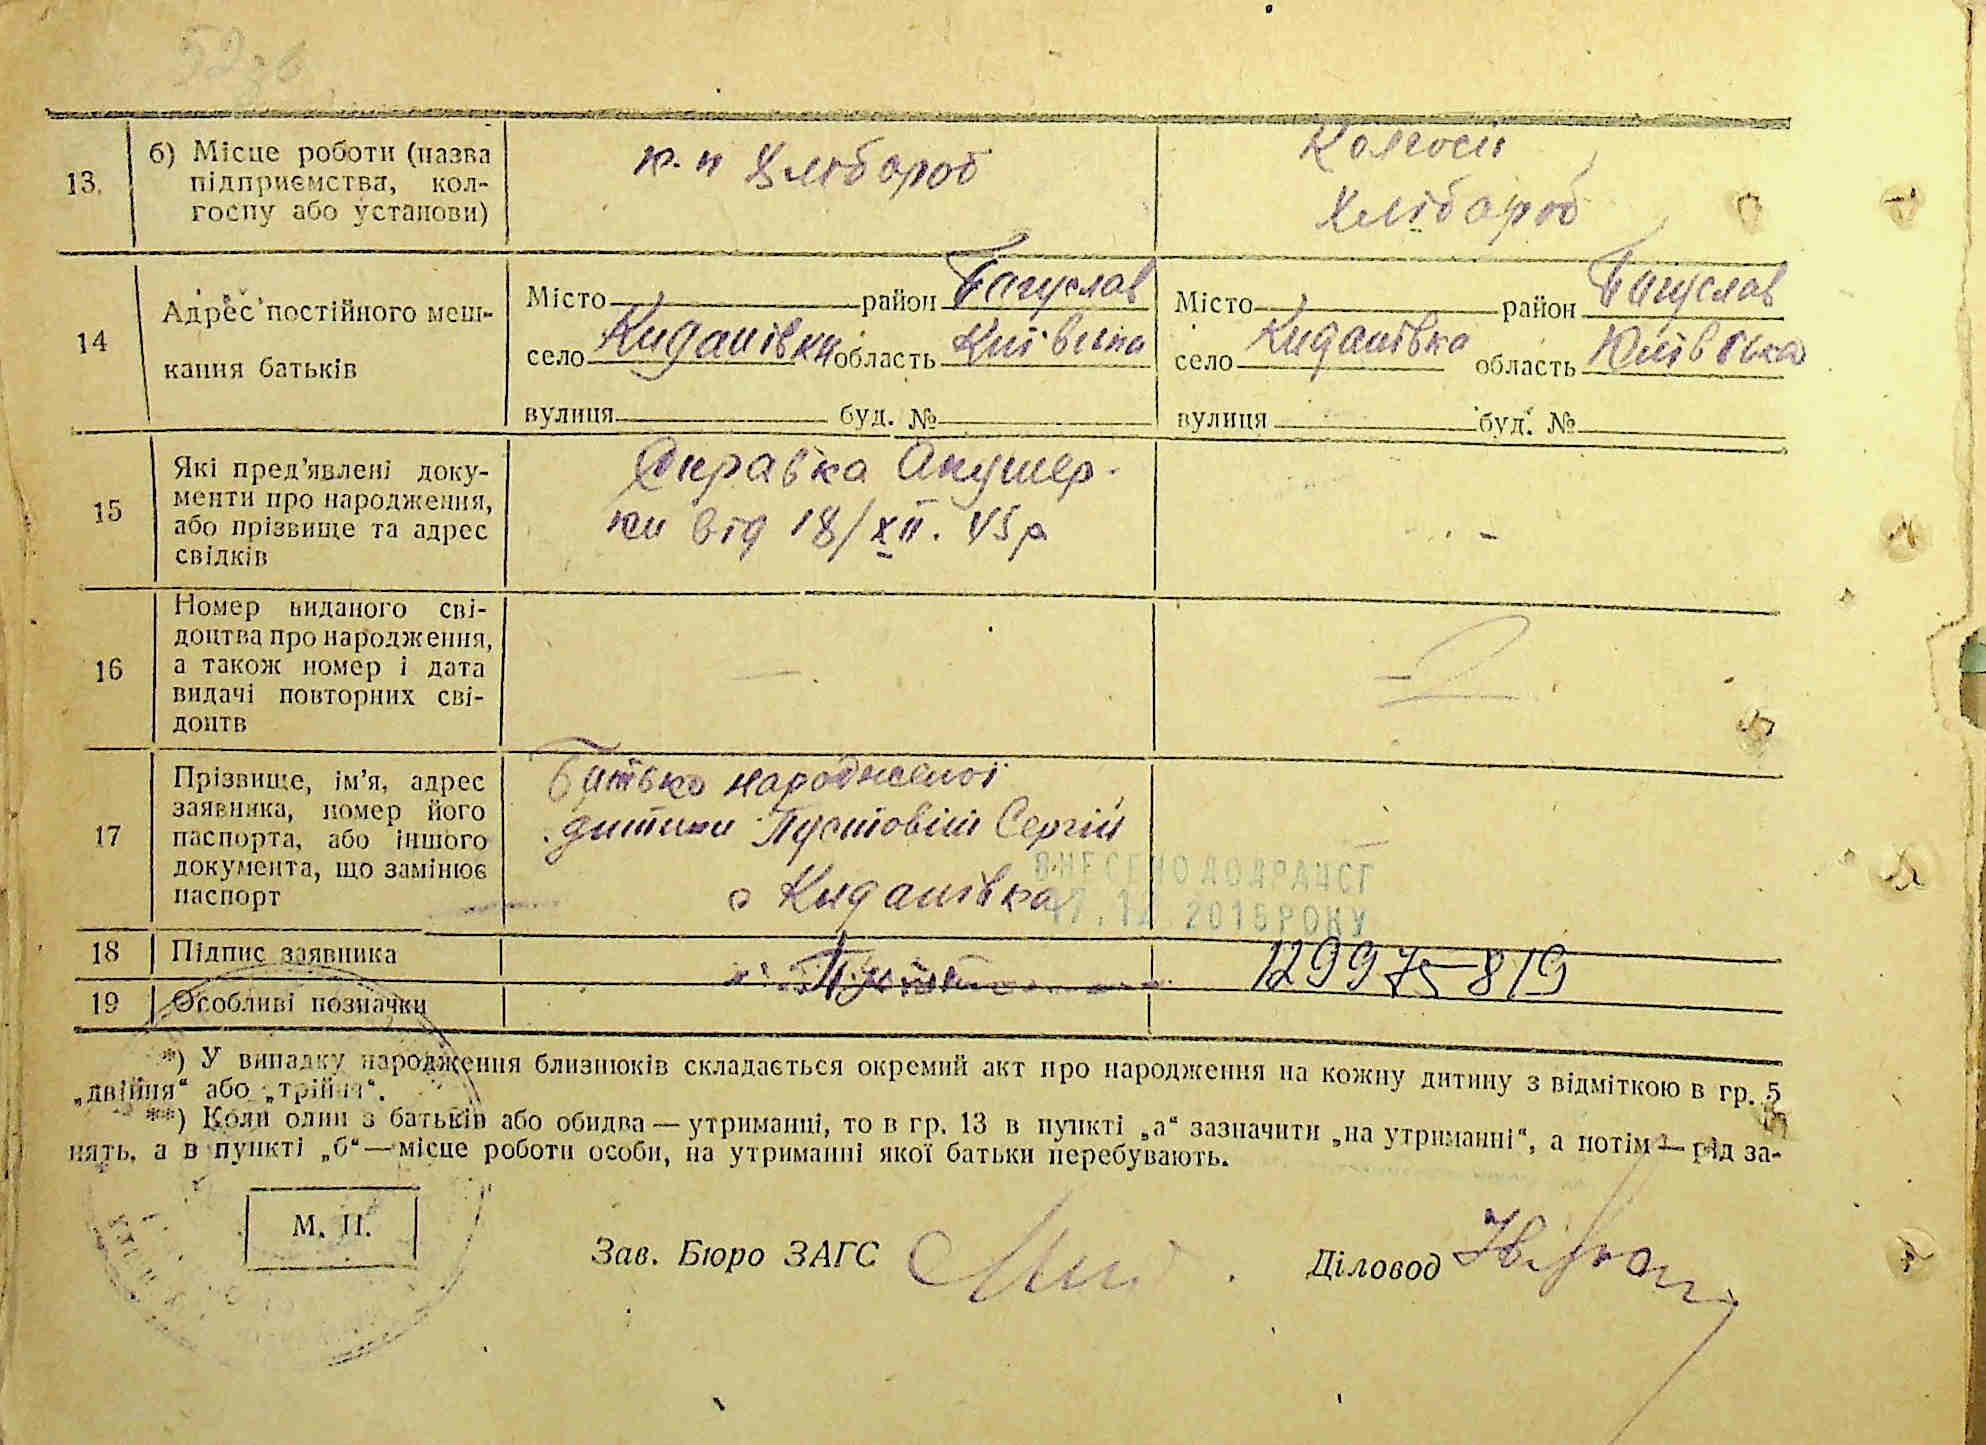 13. б) Місце роботи (назва підприємства, колгоспу або установи)
к-п Хлібороб
Колгосп
Хлібороб
14 Адрес постійного мешкання батьків
Місто район Багуслав
село Киданівка область Київська
вулиця буд. №
Місто район Багуслав
село Киданівка область Київська
вулиця буд. №
15 Які пред'явлені документи про народження, або прізвище та адрес свідків
Справка Акушер-
ки від 18/XII. 45р
16 Номер виданого свідоцтва про народження, а також номер і дата видачі повторних свідоцтв
17 Прізвище, ім'я, адрес заявника, номер його паспорта, або іншого документа, що замінює паспорт
Батько народженої
дитини Пустовіт Сергій
с Киданівка
ВНЕСЕНО ДО ДРАЦСГ
17.12 2015 РОКУ
18 Підпис заявника
129975819
19 Особливі позначки
*) У випадку народження близнюків складається окремий акт про народження на кожну дитину з відміткою в гр. 5
„двійня“ або „трійня“.
**) Коли один з батьків або обидва — утриманці, то в гр. 13 в пункті „а“ зазначити „на утриманні“, а потім — рід за-
нять, а в пункті „б“ — місце роботи особи, на утриманні якої батьки перебувають.
М. П.
Зав. Бюро ЗАГС
Діловод